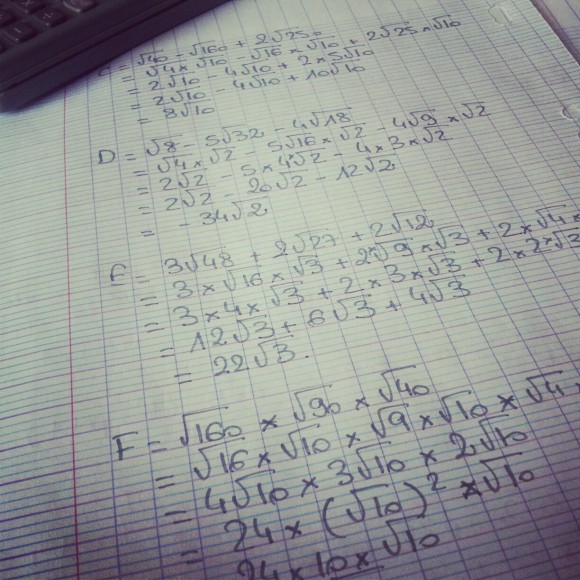 C = √40 - √160 + 2√250
= √4 × √10 - √16 × √10 + 2√25 × √10
= 2√10 - 4√10 + 2 × 5√10
= 2√10 - 4√10 + 10√10
= 8√10
D = √8 - 5√32 - 4√18
= √4 × √2 5√16 × √2 - 4√9 × √2
= 2√2 - 5 × 4√2 - 4 × 3 × √2
= 2√2 - 20√2 - 12√2
= - 34√2
E = 3√48 + 2√27 + 2√12
= 3 × √16 × √3 + 2 × √9 × √3 + 2 × √4 ×
= 3 × 4 × √3 + 2 × 3 × √3 + 2 × 2 × √3
= 12√3 + 6√3 + 4√3
= 22√3.
F = √160 × √90 × √40
= √16 × √10 × √9 × √10 × √4
= 4√10 × 3√10 × 2√10
= 24 × (√10)² × √10
24 × 10 × √10